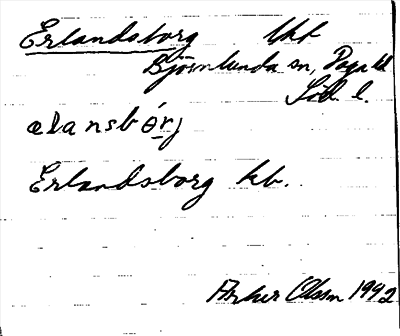 Erlandsborg lht
Björnlunda sn, Daga hd
Söd. l.
ælansbórj
Erlandsborg hb.
Olsson 1942